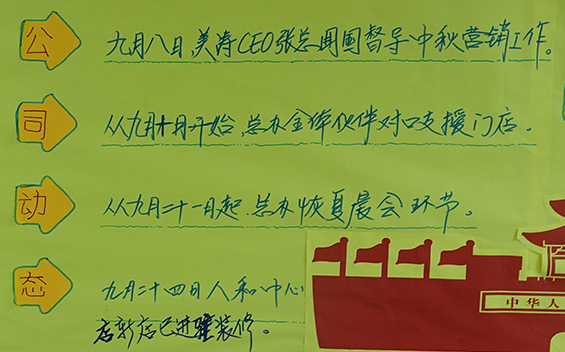 公 九月八日,美涛CEO张总督导中秋营销工作。
司 从九月十日开始,总办全体伙伴对口支援门店。
动 从九月二十一日起,总办恢复晨会环节。
态 九月二十四日人和中心
店新店已进驻装修。
中华人